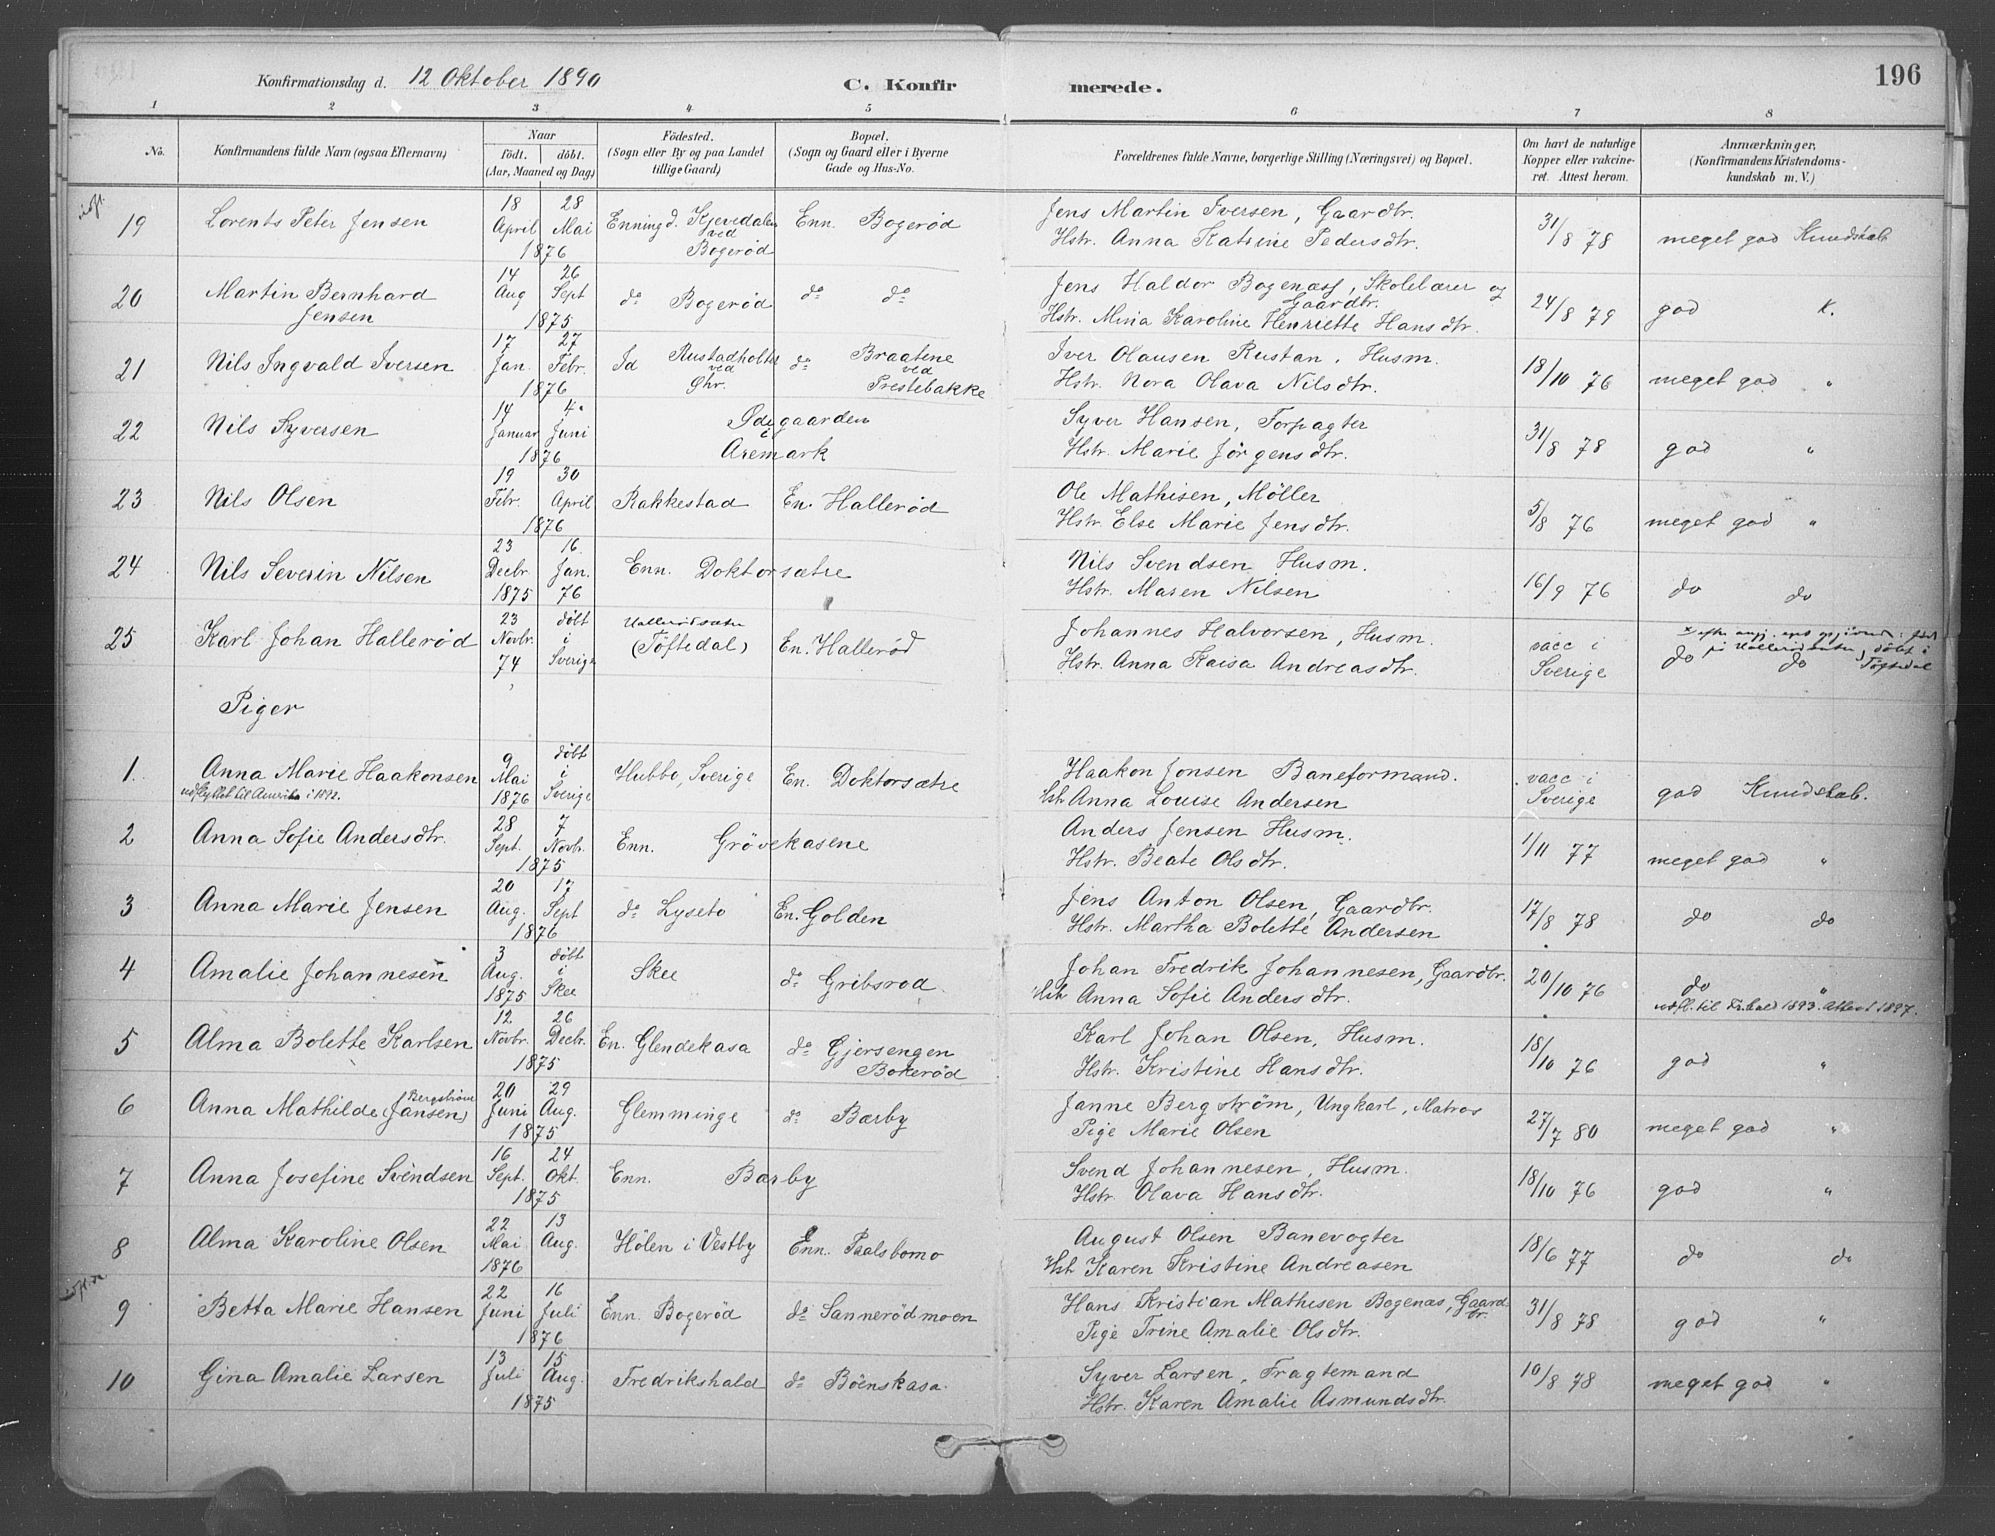 196
Konfirmationsdag d. 12 Oktober 1890 C. Konfirmerede.
1 2 3 4 5 6 7 8
No. Konfirmandens fulde Navn (ogsaa Efternavn) Naar födt. döbt. (Aar, Maaned og Dag) Födested. (Sogn eller By og paa Landet tillige Gaard) Bopæl. (Sogn og Gaard eller i Byerne Gade og Hus-No. Forældrenes fulde Navne, borgerlige Stilling (Næringsvei) og Bopæl. Om havt de naturlige Kopper eller vakcineret. Attest herom. Anmærkninger, (Konfirmandens Kristendomskundskab m. V.)
19 Lorents Peter Jensen 18 April 28 Mai 1876 Enningd. Kjevedalen ved Bogerød Enn. Bogerød Jens Martin Iversen, Gaardbr. Hstr. Anna Katrine Pedersdtr. 31/8 78 meget god Kundskab
20 Martin Bernhard Jensen 14 Aug 26 Sept 1875 do Bogerød do do Jens Haldor Bogenæss, Skolelærer og Gaardbr. Hstr. Mina Karoline Henriette Hansdtr. 24/8 79 god K.
21 Nils Ingvald Iversen 17 Jan. 27 Febr. 1876 Id Rustadholtet ved Ghr. do Braatene ved Prestebakke Iver Olausen Rustan, Husm. Hstr. Nora Olava Nilsdtr. 18/10 76 meget god "
22 Nils Syversen 14 Januar 4. Juni 1876 Ødegaarden i Aremark Syver Hansen, Forpagter Hstr. Marie Jörgensdtr. 31/8 78 god "
23 Nils Olsen 19 Febr. 30 April 1876 Rakkestad En. Hallerød Ole Mathisen, Møller Hstr. Else Marie Jensdtr. 5/8 76 meget god "
24 Nils Severin Nilsen 23 Decbr 1875 16. Jan. 76 Enn. Doktorsætre Nils Svendsen Husm. Hstr. Maren Nilsen 16/9 76 do do
25 Karl Johan Hallerød 23 Novbr. 74 døbt i Sverige Hallerødsæter (Töftedal) En. Hallerød Johannes Halvorsen, Husm. Hstr. Anna Kaisa Andreasdtr. vacc i Sverige do do døbt i Töftedal
Piger
1 Anna Marie Haakonsen udflyttet til Amerika i 1892. 9 Mai 1876 døbt i Sverige Hubbo, Sverige En. Doktorsætre Haakon Jonsen Baneformand. Hst Anna Louise Andersen vacc i Sverige god Kundskab.
2 Anna Sofie Andersdtr. 28 Sept. 7 Novbr. 1875 Enn. Grövekasene Anders Jensen Husm. Hstr. Beate Olsdtr. 1/11 77 meget god "
3 Anna Marie Jensen 20 Aug. 17 Sept 1876 do Lyseto En. Golden Jens Anton Olsen, Gaardbr. Hstr. Martha Bolette Andersen 17/8 78 do do
4 Amalie Johannesen 3 Aug. 1875 døbt i Skee Skee do Gribsrød Johan Fredrik Johannesen, Gaardbr. Hst Anna Sofie Andersdtr. 20/10 76 do " udfl. til Fr.hald 1893. Attest 1897.
5 Alma Bolette Karlsen 12 Novbr. 26 Decbr. 1875 En. Glendekasa do Gjersengen Bokerød Karl Johan Olsen, Husm. Hstr. Kristine Hansdtr. 18/10 76 god "
6 Anna Mathilde Bergström (Jansen) 20 Juni 29 Aug. 1875 Glemminge do Bærby Janne Bergström, Ungkarl, Matros Pige Marie Olsen 27/7 80 meget god "
7 Anna Josefine Svendsen 16 Sept. 24 Okt. 1875 Enn. Bærby Svend Johannesen, Husm. Hstr. Olava Hansdtr. 18/10 76 god "
8 Alma Karoline Olsen 22 Mai 13 Aug. 1876 Hölen i Vestby Enn. Paalsbomo August Olsen Banevogter Hst Karen Kristine Andreasen 18/6 77 do do
9 Betta Marie Hansen 22 Juni 16 Juli 1876 Enn. Bogerød do Sannerødmoen Hans Kristian Mathisen Bogenæs, Gaardbr. Pige Trine Amalie Olsdtr. 31/8 78 god "
10 Gina Amalie Larsen 13 Juli 15 Aug. 1875 Fredrikshald do Böenskasa. Syver Larsen, Fragtemand Hstr. Karen Amalie Asmundsdtr. 10/8 78 meget god "